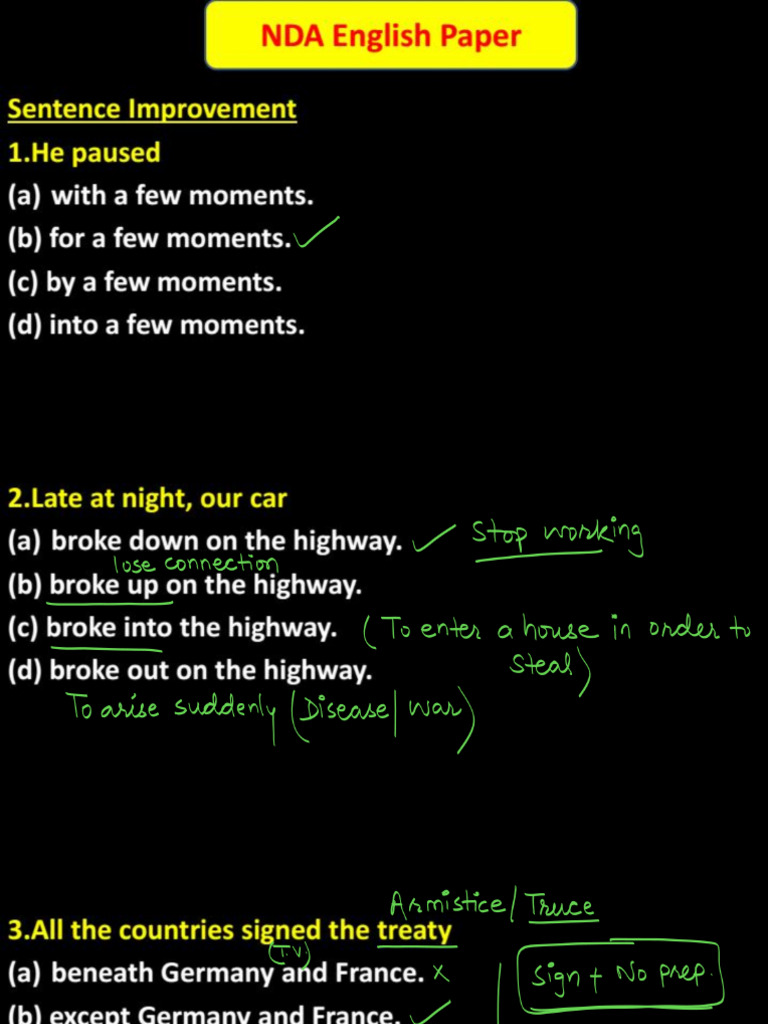 NDA English Paper
Sentence Improvement
1.He paused
(a) with a few moments.
(b) for a few moments.
(c) by a few moments.
(d) into a few moments.
2.Late at night, our car
(a) broke down on the highway. Stop working
lose connection
(b) broke up on the highway.
(c) broke into the highway. (To enter a house in order to
steal)
(d) broke out on the highway.
To arise suddenly (Disease/war)
Armistice/Truce
3.All the countries signed the treaty
(T.V)
(a) beneath Germany and France. x Sign + No prep.
(b) except Germany and France.